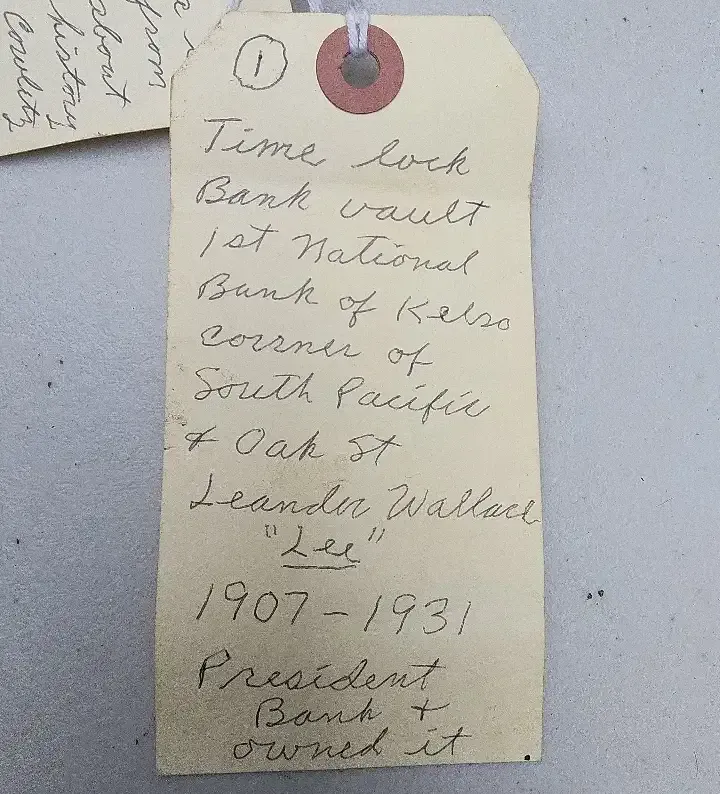 from
about
history
Cowlitz
1
Time lock
Bank vault
1st National
Bank of Kelso
corner of
South Pacific
& Oak St
Leander Wallace
"Lee"
1907 - 1931
President
Bank +
owned it